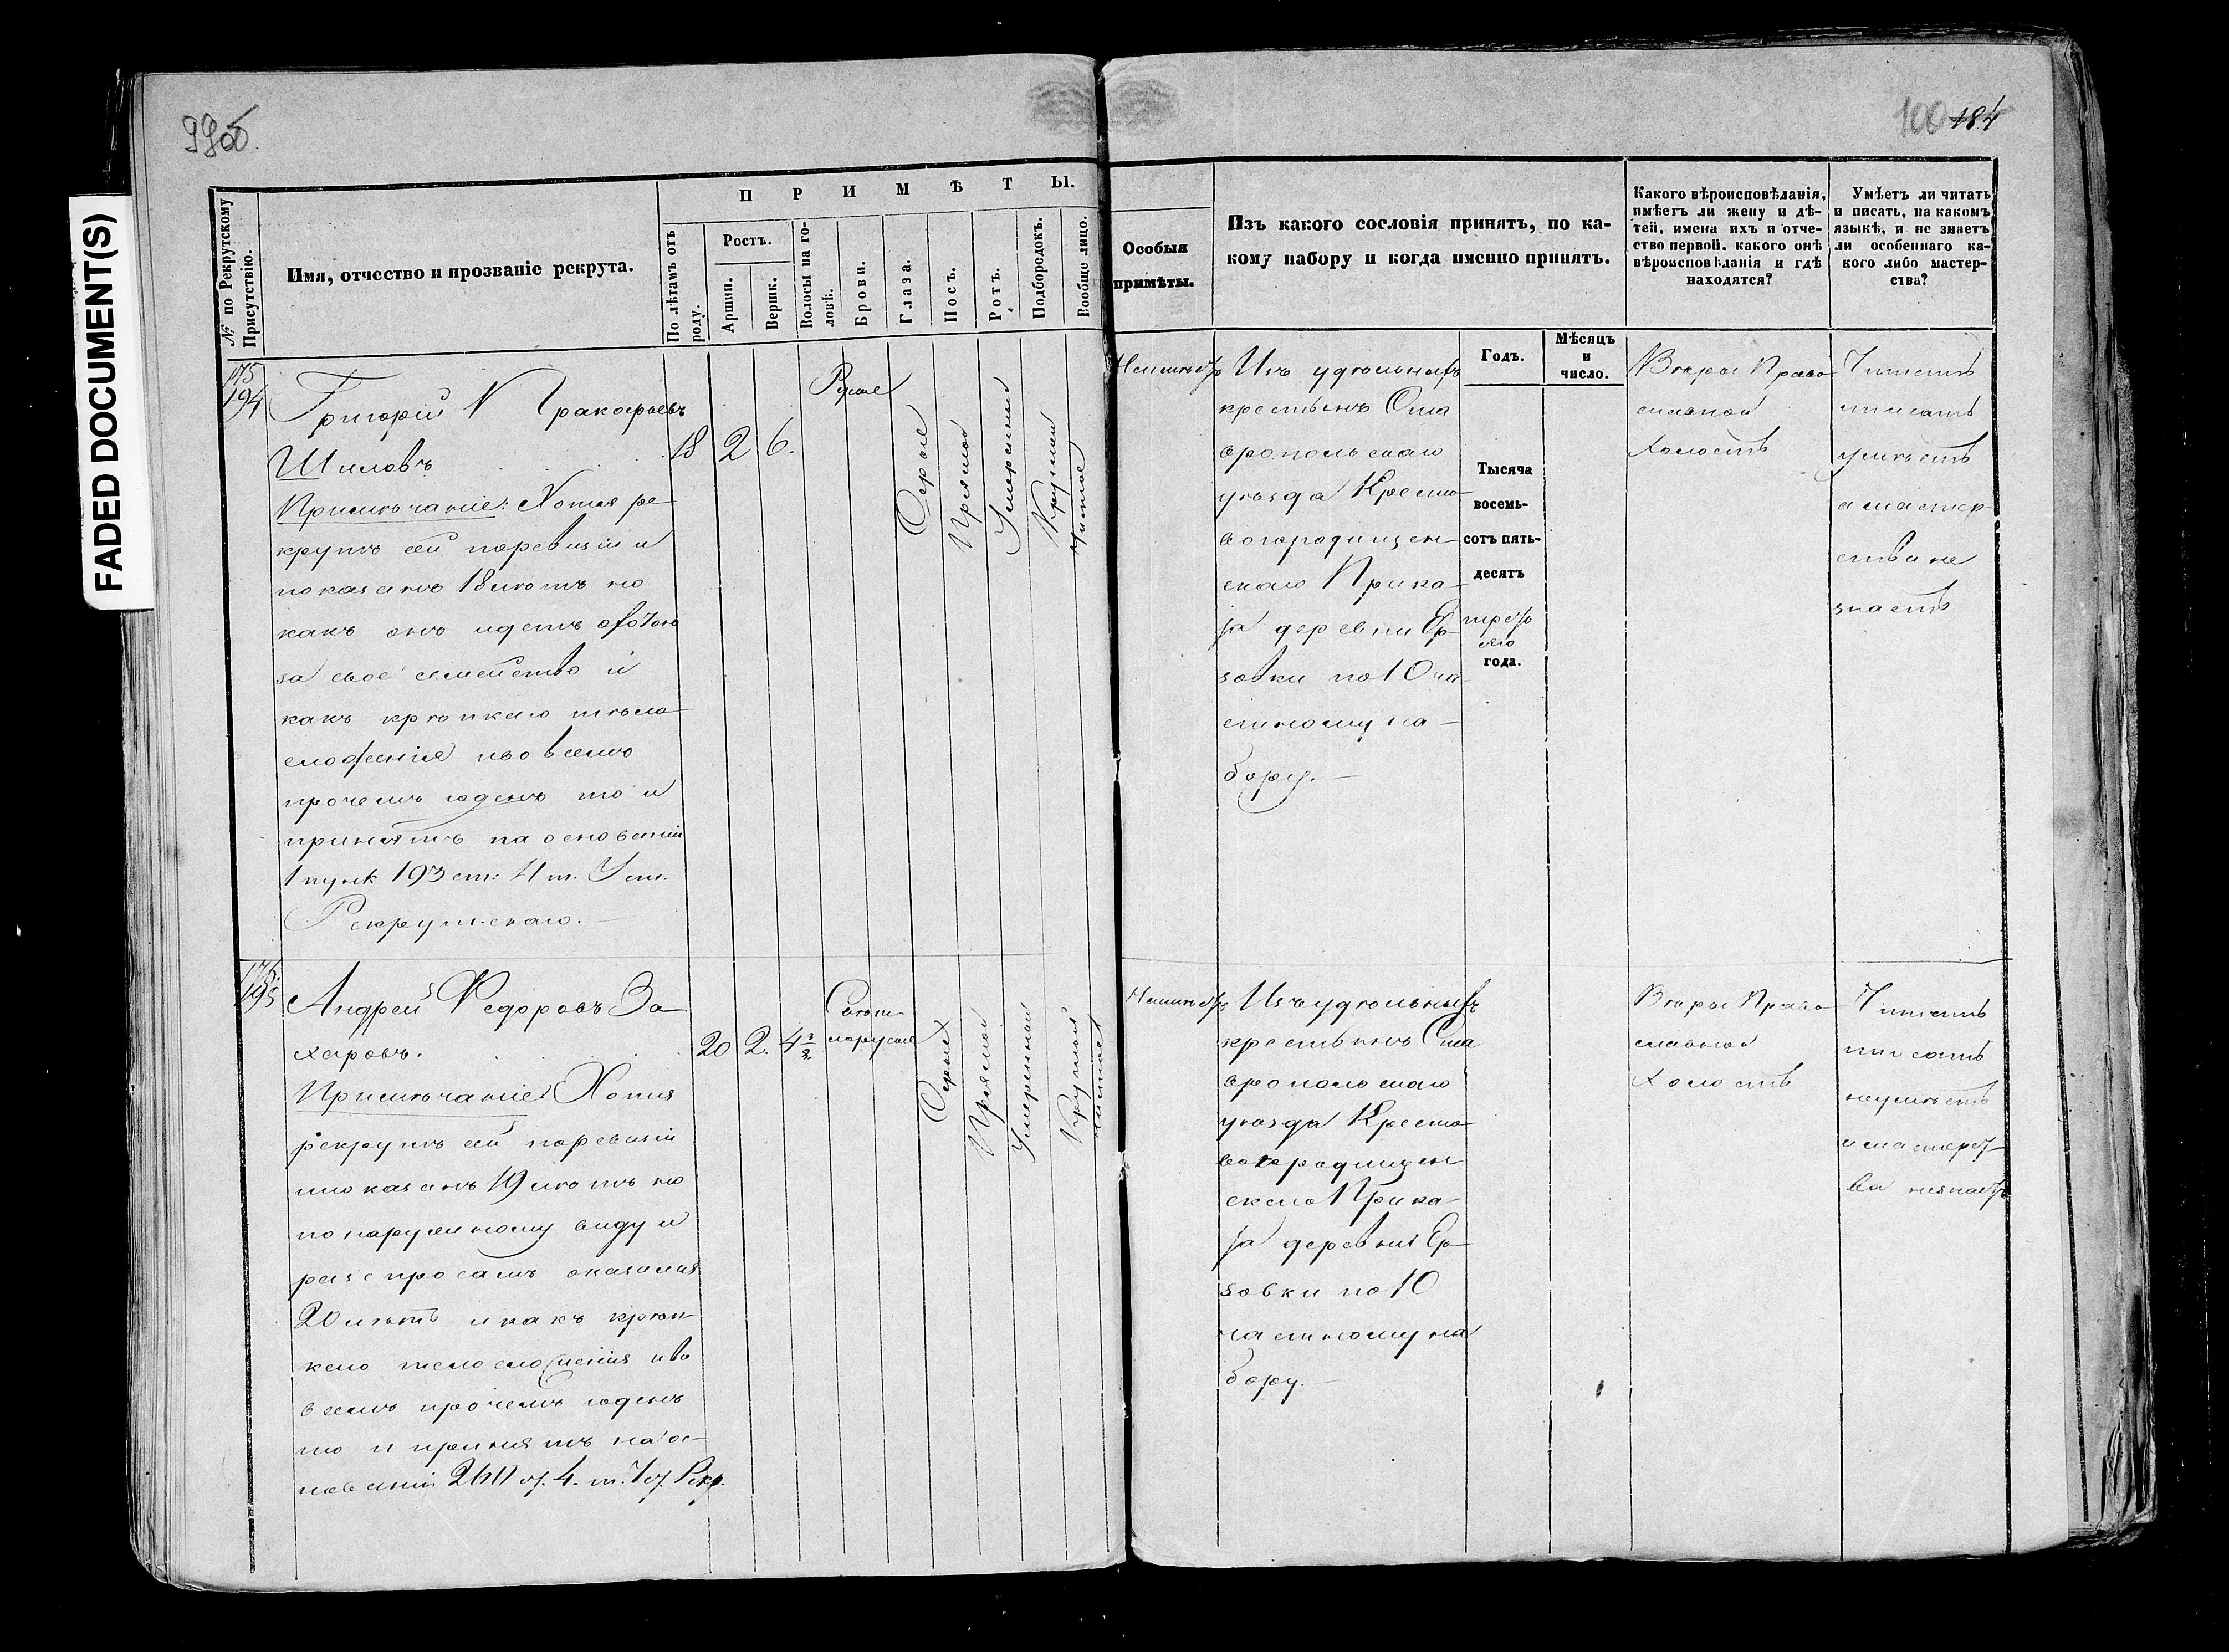 99об.
100 184
FADED DOCUMENT(S)
№ по Рекрутскому Присутствію.
Имя, отчество и прозваніе рекрута.
П Р И М Ѣ Т Ы.
По лѣтамъ отъ роду.
Ростъ.
Аршин.
Вершк.
Волосы на головѣ.
Брови.
Глаза.
Носъ.
Ротъ.
Подбородокъ.
Вообще лицо.
Особыя
примѣты.
Изъ какого сословія принятъ, по ка-
кому набору и когда именно принятъ.
Годъ.
Мѣсяцъ
и
число.
Какого вѣроисповѣданія,
имѣетъ ли жену и дѣ-
тей, имена ихъ и отче-
ство первой, какого онѣ
вѣроисповѣданія и гдѣ
находятся?
Умѣетъ ли читать
и писать, на какомъ
языкѣ, и не знаетъ
ли особеннаго ка-
кого либо мастер-
ства?
175
194
Григорій Пракофьевъ
Шиловъ
Примѣчаніе: Хотя ре-
крутъ сей поревизіи и
показанъ 18 лѣтъ но
какъ онъ идетъ охотою
за свое семейство и
какъ крѣпкаго тѣло-
сложенія и во всемъ
прочемъ годенъ то и
принятъ на основаніи
1 пунк 193 ст: 4 т. Уст.
Рекрутскаго.
18 2 6.
Русые
Серые
Прямой
Умеренный
Круглый
Чистое
Неимѣетъ
Изъ удѣльныхъ
крестьянъ Ста
вропольскаго
уѣзда Кресто-
вогородищен-
скаго Прика-
за деревни Ер-
зовки по 10 ча
стному на-
бору.
Тысяча
восемь-
сотъ пять-
десятъ
третьяго
года.
Вѣры Право
славной
Холостъ
Читать
писать
умѣетъ
а мастер-
ства не
знаетъ
195
Андрей Федоровъ За-
харовъ.
Примѣчаніе: Хотя
рекрутъ сей поревизіи
и показанъ 19 лѣтъ но
по наружному виду и
разспросамъ оказался
20 лѣтъ и какъ крѣп-
каго телосложенія и во
всемъ прочемъ годенъ
то и принятъ на ос-
нованіи 260 ст. 4. т. Уст. Рекр.
20 2. 4 1/2
Светлорусые
Серые
Прямой
Умеренный
Круглый
Чистое
Неимѣетъ
Изъ удѣльныхъ
крестьянъ Ста
вропольскаго
уѣзда Кресто-
вогородищен
скаго Прика-
за деревни Ер-
зовки по 10
частному на
бору.
Вѣры Право
славной
Холостъ
Читать
писать
неумѣетъ
и мастерст-
ва незнаетъ